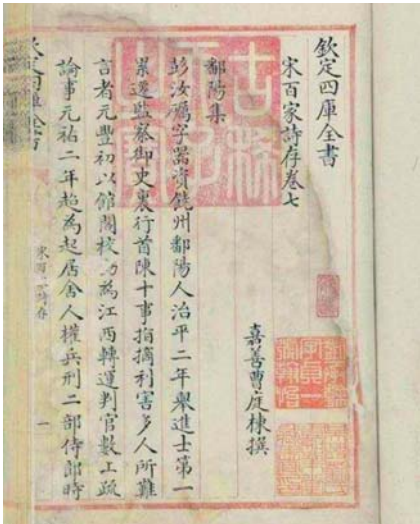 欽定四庫全書
宋百家詩存卷七
嘉善曹庭棟撰
鄱陽集
彭汝礪字器資饒州鄱陽人治平二年舉進士第一
累遷監察御史裏行首陳十事指摘利害多人所難
言者元豐初以館閣校勘為江西轉運判官數上疏
論事元祐二年起為起居舍人權兵刑二部侍郎時
欽定四庫全書
宋百家詩存
一